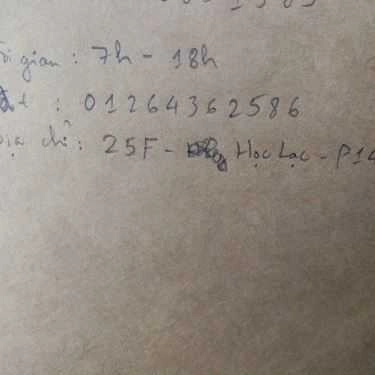 ời gian : 7h - 18h
đt : 01264362586
Địa chỉ : 25F - Học Lạc - P14